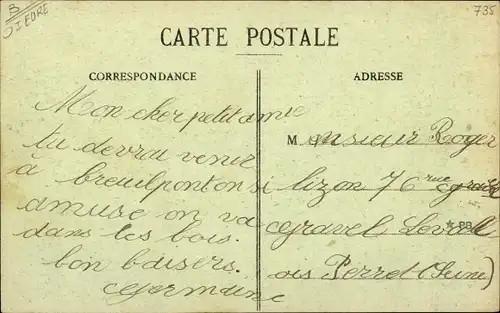 B
DIEDRE
735
CARTE POSTALE
CORRESPONDANCE
ADRESSE
Mon cher petit amie
tu devrai venir
à breuilpont on si
amuse on va
dans les bois.
bon baisers.
Germaine
Monsieur Roger
lizon 76 rue
gravel Levall
ois Perret (Seine)